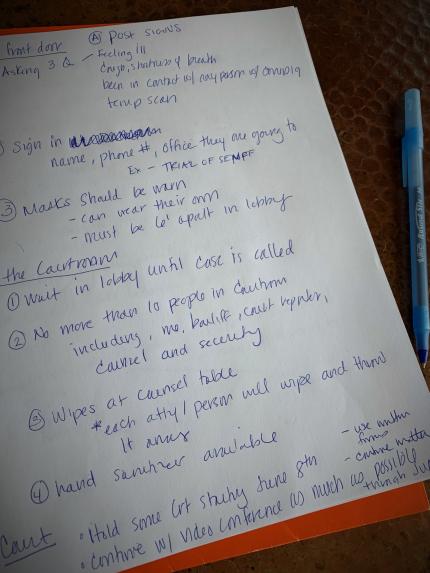 front door
(A) Post signs
Asking 3 Q - Feeling ill
Cough, shortness of breath
been in contact w/ any person w/
temp scan
Sign in
name, phone #, office they are going to
Ex - TRIAL OF SE
(3) Masks should be worn
- can wear their own
- must be 6' apart in lobby
the Courtroom
(1) Wait in lobby until case is called
(2) No more than 10 people in Courtroom
including, me, bailiff, court reporter,
Counsel and security
(3) Wipes at Counsel table
*each atty/person will wipe and throw
it away
(4) hand sanitizer available
Court
• Hold some Crt starting June 8th
• Continue w/ video conference as much as possible
through
- use
- continue